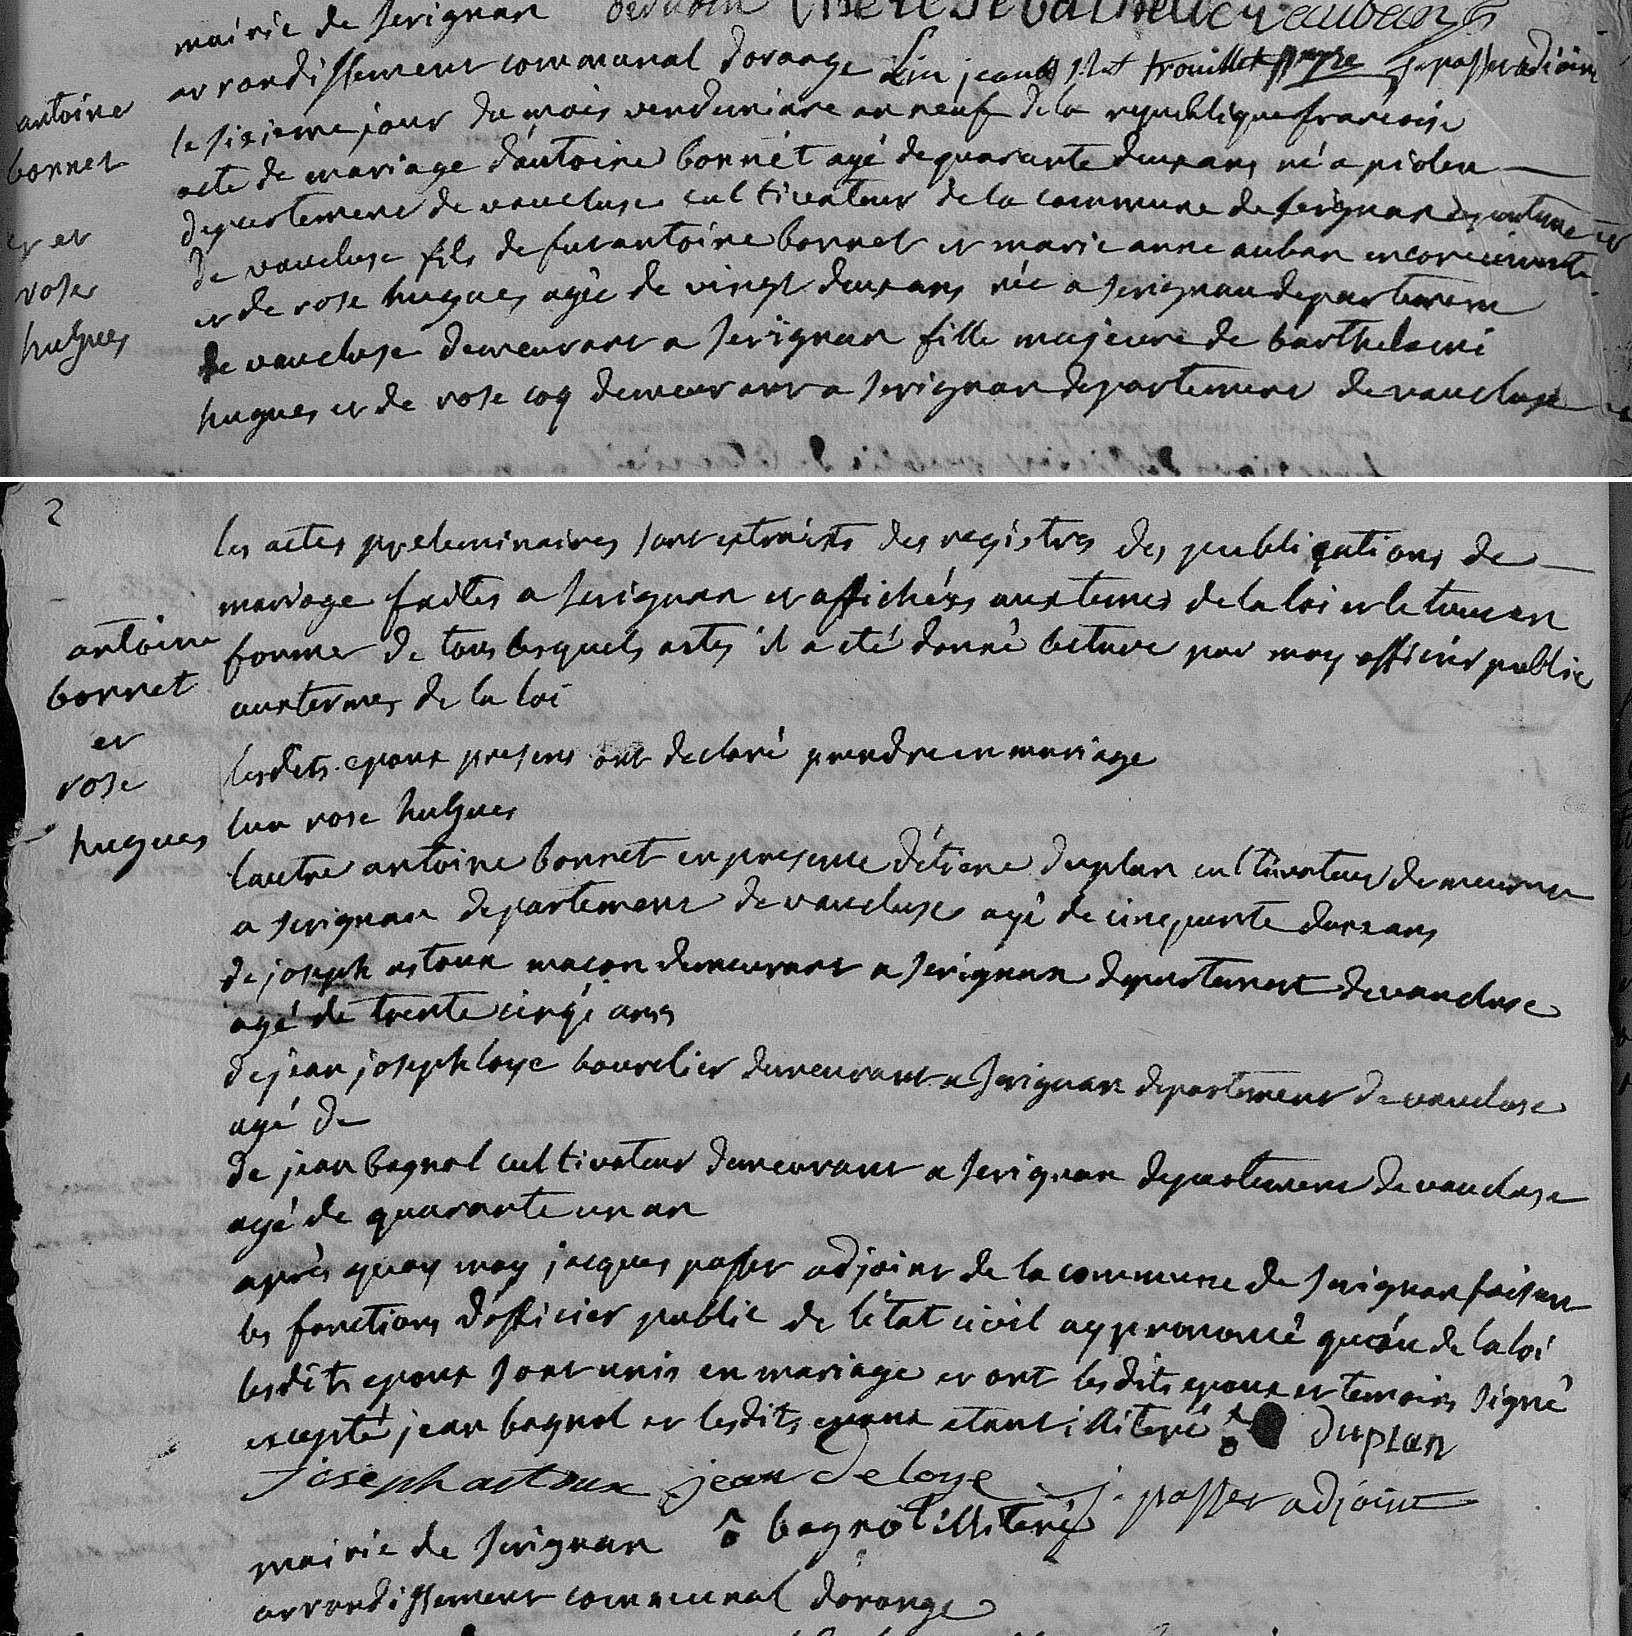 mairie de serignan
arrondissement communal dorange
j. passer adjoint
le sixieme jour du mois vendemiaire an neuf de la republique francoise
antoine
bonnet
et
rose
hugues
acte de mariage d'antoine bonnet agé de quarante deux ans né a piolen
departement de vaucluse cultivateur de la commune de serignan departement
de vaucluse fils de fut antoine bonnet et marie anne auban encore vivante
et de rose hugues agée de vingt deux ans née a serignan departement
de vaucluse demeurant a serignan fille majeure de barthelemi
hugues et de rose coq demeurant a serignan departement de vaucluse
2
antoine
bonnet
et
rose
hugues
les actes preleminaires sont extraits des registres des publications de
mariage faites a serignan et affichés aux termes de la loi et le tout en
forme de tous lesquels actes il a eté donné lecture par moy officier public
aux termes de la loi
lesdits epoux presens ont declaré prendre en mariage
lun rose hugues
lautre antoine bonnet en presence d'étiene duplan cultivateur demeurant
a serignan departement de vaucluse agé de cinquante deux ans
de joseph astoux maçon demeurant a serignan departement de vaucluse
agé de trente cinq ans
de jean joseph loye bourelier demeurant a serignan departement de vaucluse
agé de
de jean bagnol cultivateur demeurant a serignan departement de vaucluse
agé de quarante un an
après quoy moy jacques passer adjoint de la commune de serignan faisant
les fonctions d'officier public de l'état civil ay prononcé qu'au de la loi
lesdits epoux sont unis en mariage et ont lesdits epoux et temoins signé
excepté jean bagnol et lesdits epoux etant illiteré duplan
joseph astoux jean deloye j. passer adjoint
bagnol illiteré
mairie de serignan
arrondissement communal dorange